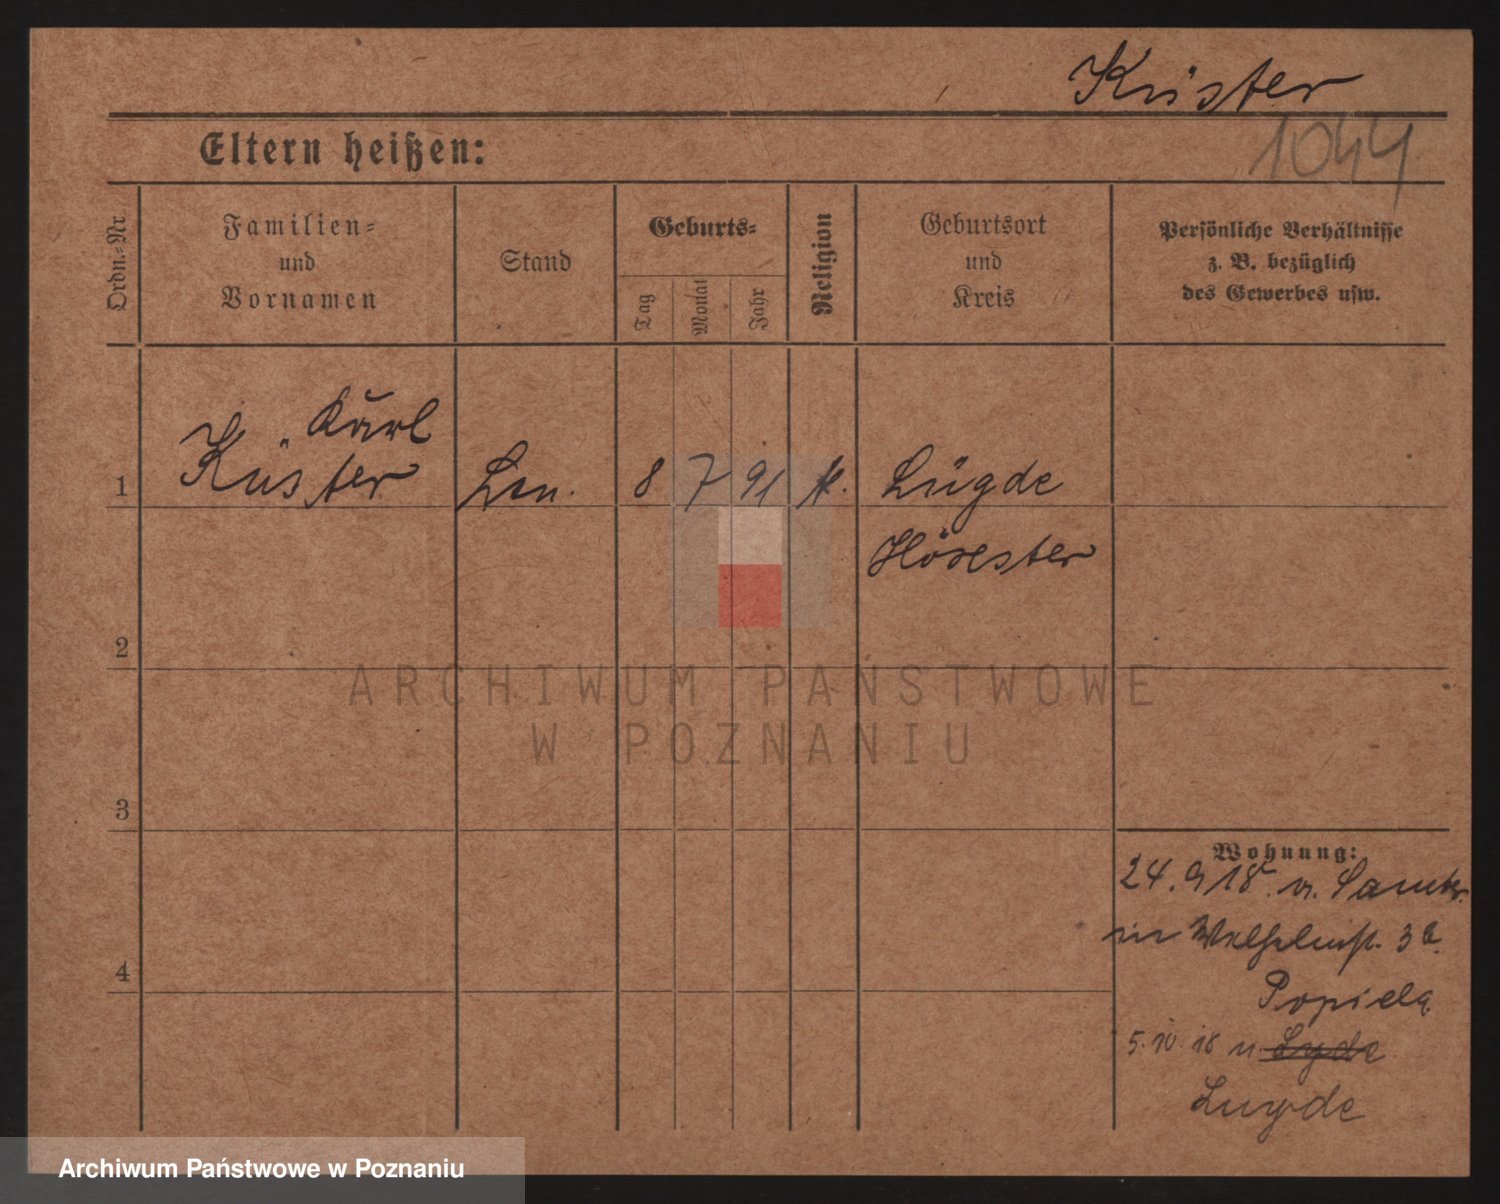 Küster
1044
Eltern heißen:
Ordn.-Nr.
Familien-
und
Vornamen
Stand
Geburts-
Tag
Monat
Jahr
Religion
Geburtsort
und
Kreis
Persönliche Verhältnisse
z. B. bezüglich
des Gewerbes usw.
Karl
1 Küster 8 7 91 k. Lügde
Höxester
2
ARCHIWUM PAŃSTWOWE
W POZNANIU
3
Wohnung:
24. 9 18. v. Samter
in Wilhelmst. 3b.
Popiela
5. 10. 18 n. Lyde
4
Lugde
Archiwum Państwowe w Poznaniu